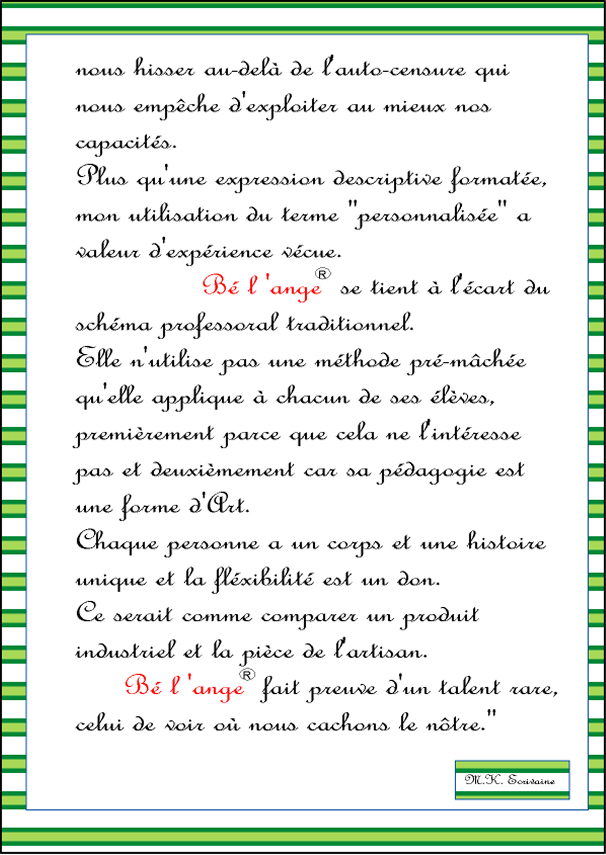 nous hisser au-delà de l'auto-censure qui
nous empêche d'exploiter au mieux nos
capacités.
Plus qu'une expression descriptive formatée,
mon utilisation du terme "personnalisée" a
valeur d'expérience vécue.
Bé l 'ange® se tient à l'écart du
schéma professoral traditionnel.
Elle n'utilise pas une méthode pré-mâchée
qu'elle applique à chacun de ses élèves,
premièrement parce que cela ne l'intéresse
pas et deuxièmement car sa pédagogie est
une forme d'Art.
Chaque personne a un corps et une histoire
unique et la fléxibilité est un don.
Ce serait comme comparer un produit
industriel et la pièce de l'artisan.
Bé l 'ange® fait preuve d'un talent rare,
celui de voir où nous cachons le nôtre."
M.K. Ecrivaine